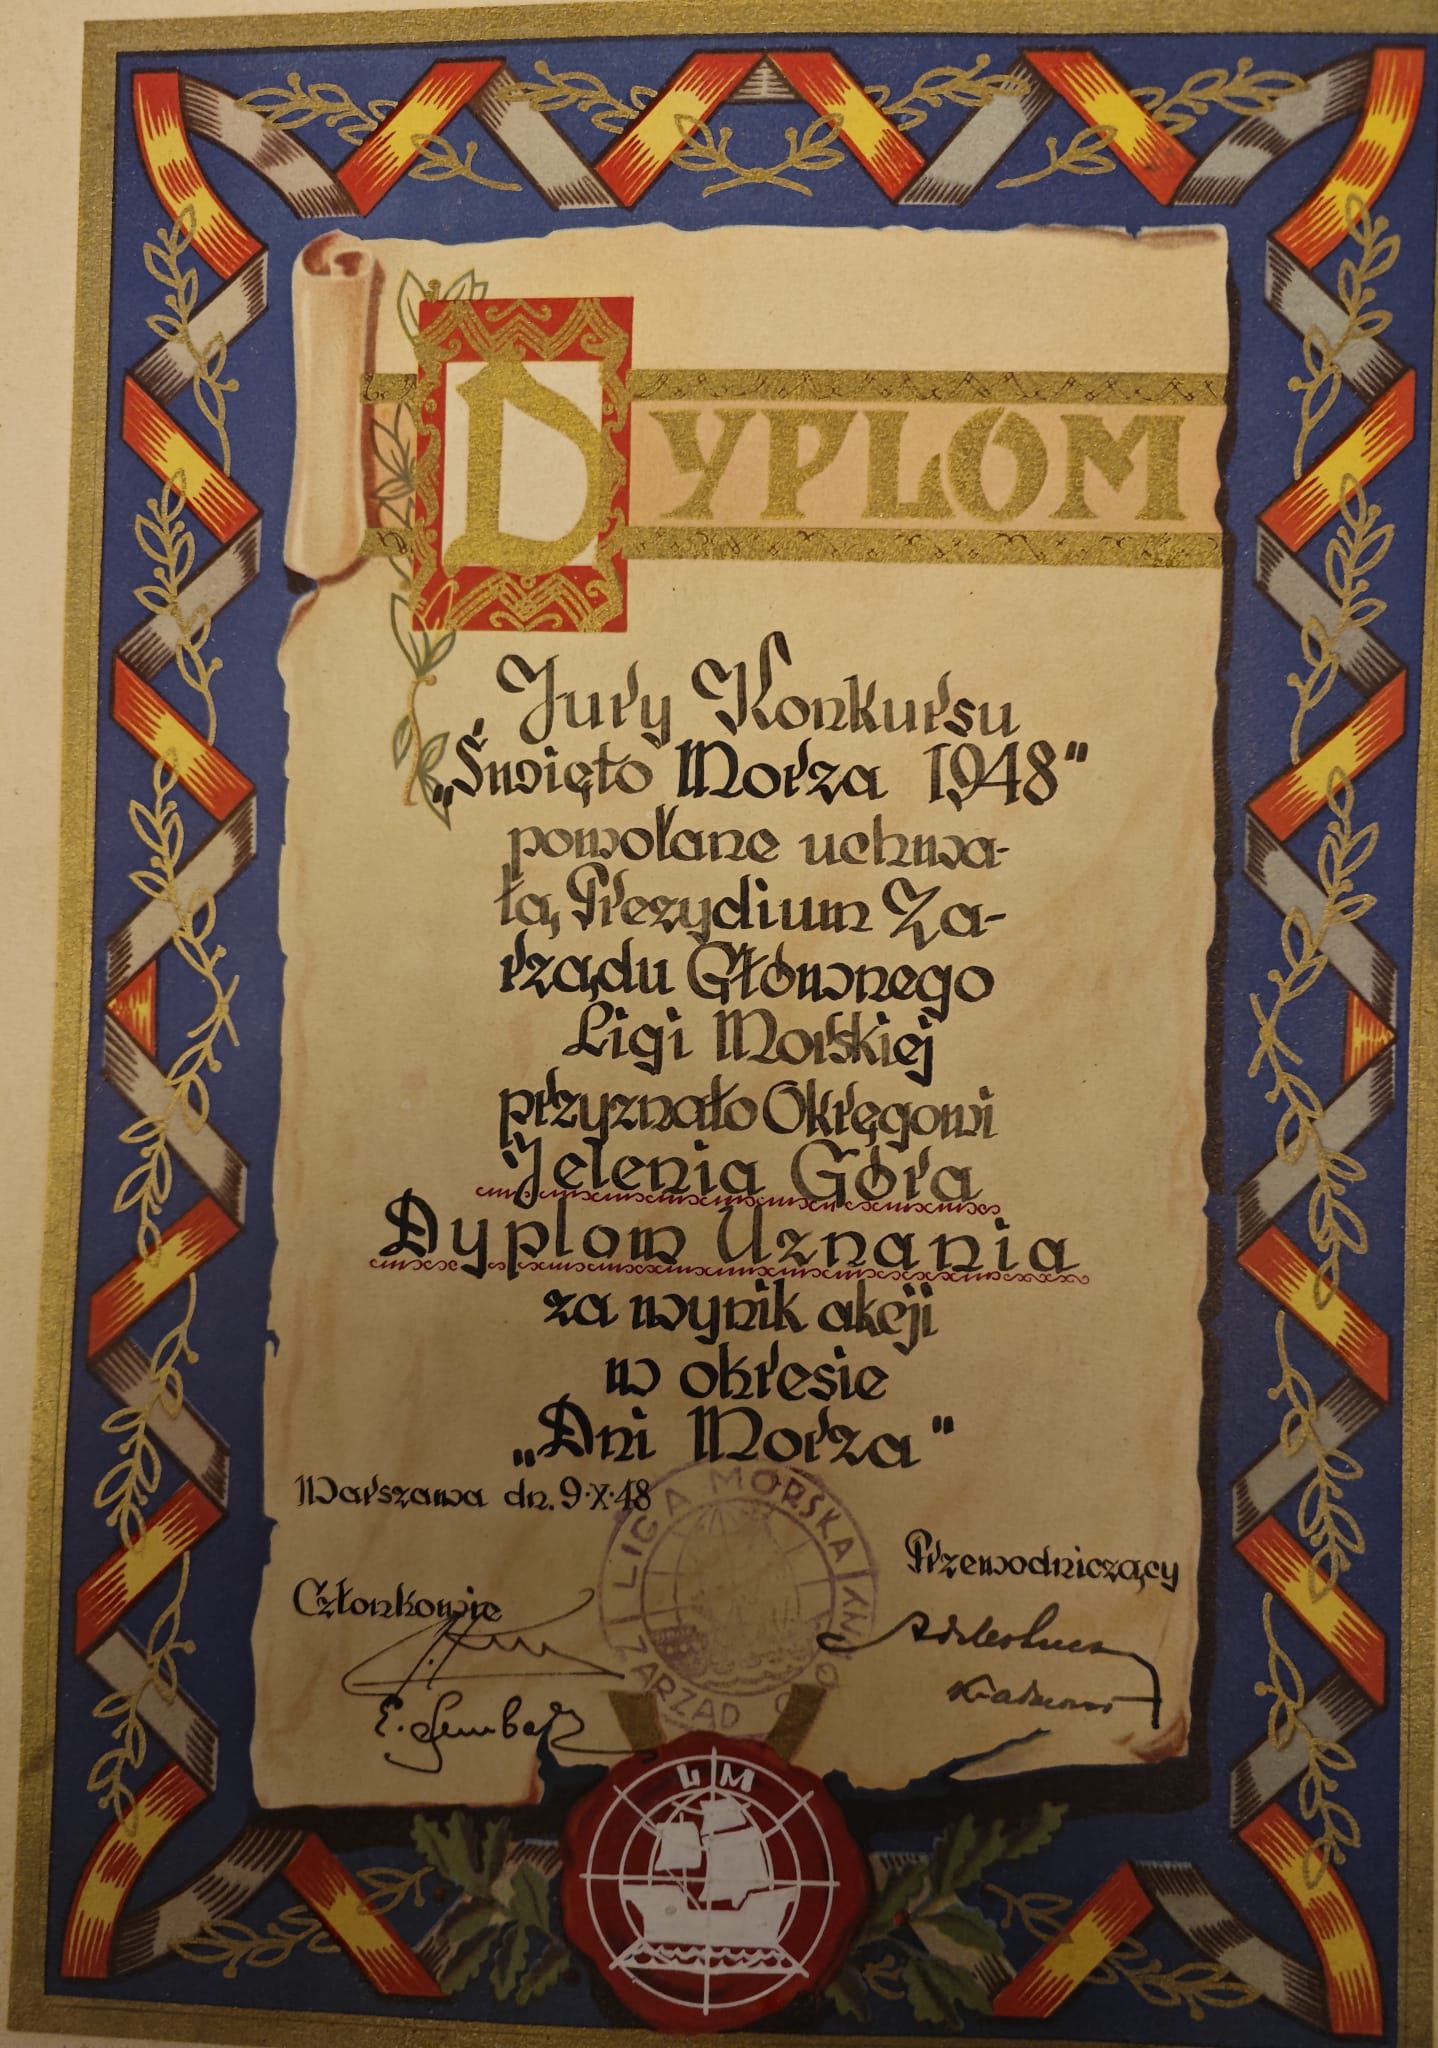 DYPLOM
Jury Konkursu
„Święto Morza 1948"
powołane uchwa-
łą Prezydium Za-
rządu Głównego
Ligi Morskiej
przyznało Okręgowi
Jelenia Góra
Dyplom Uznania
za wynik akcji
w okresie
„Dni Morza"
Warszawa dn. 9·X·48
LIGA MORSKA
ZARZĄD
Przewodniczący
Członkowie
LM